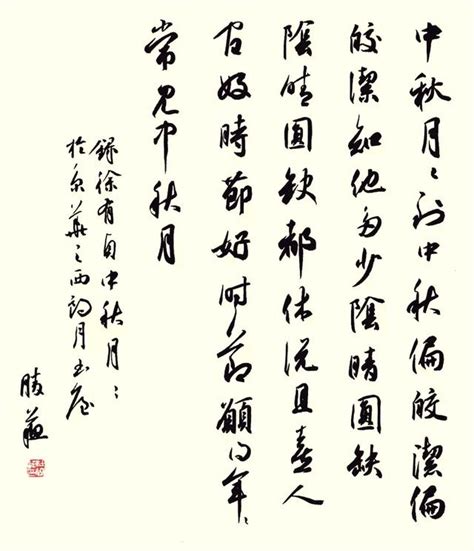 中秋月〻到中秋偏皎潔偏
皎潔知他多少陰晴圓缺
陰晴圓缺都休說且喜人
间好時節好時節願得年〻
常見中秋月
錄徐有貞中秋月〻
於京華之西韵月书屋
勝